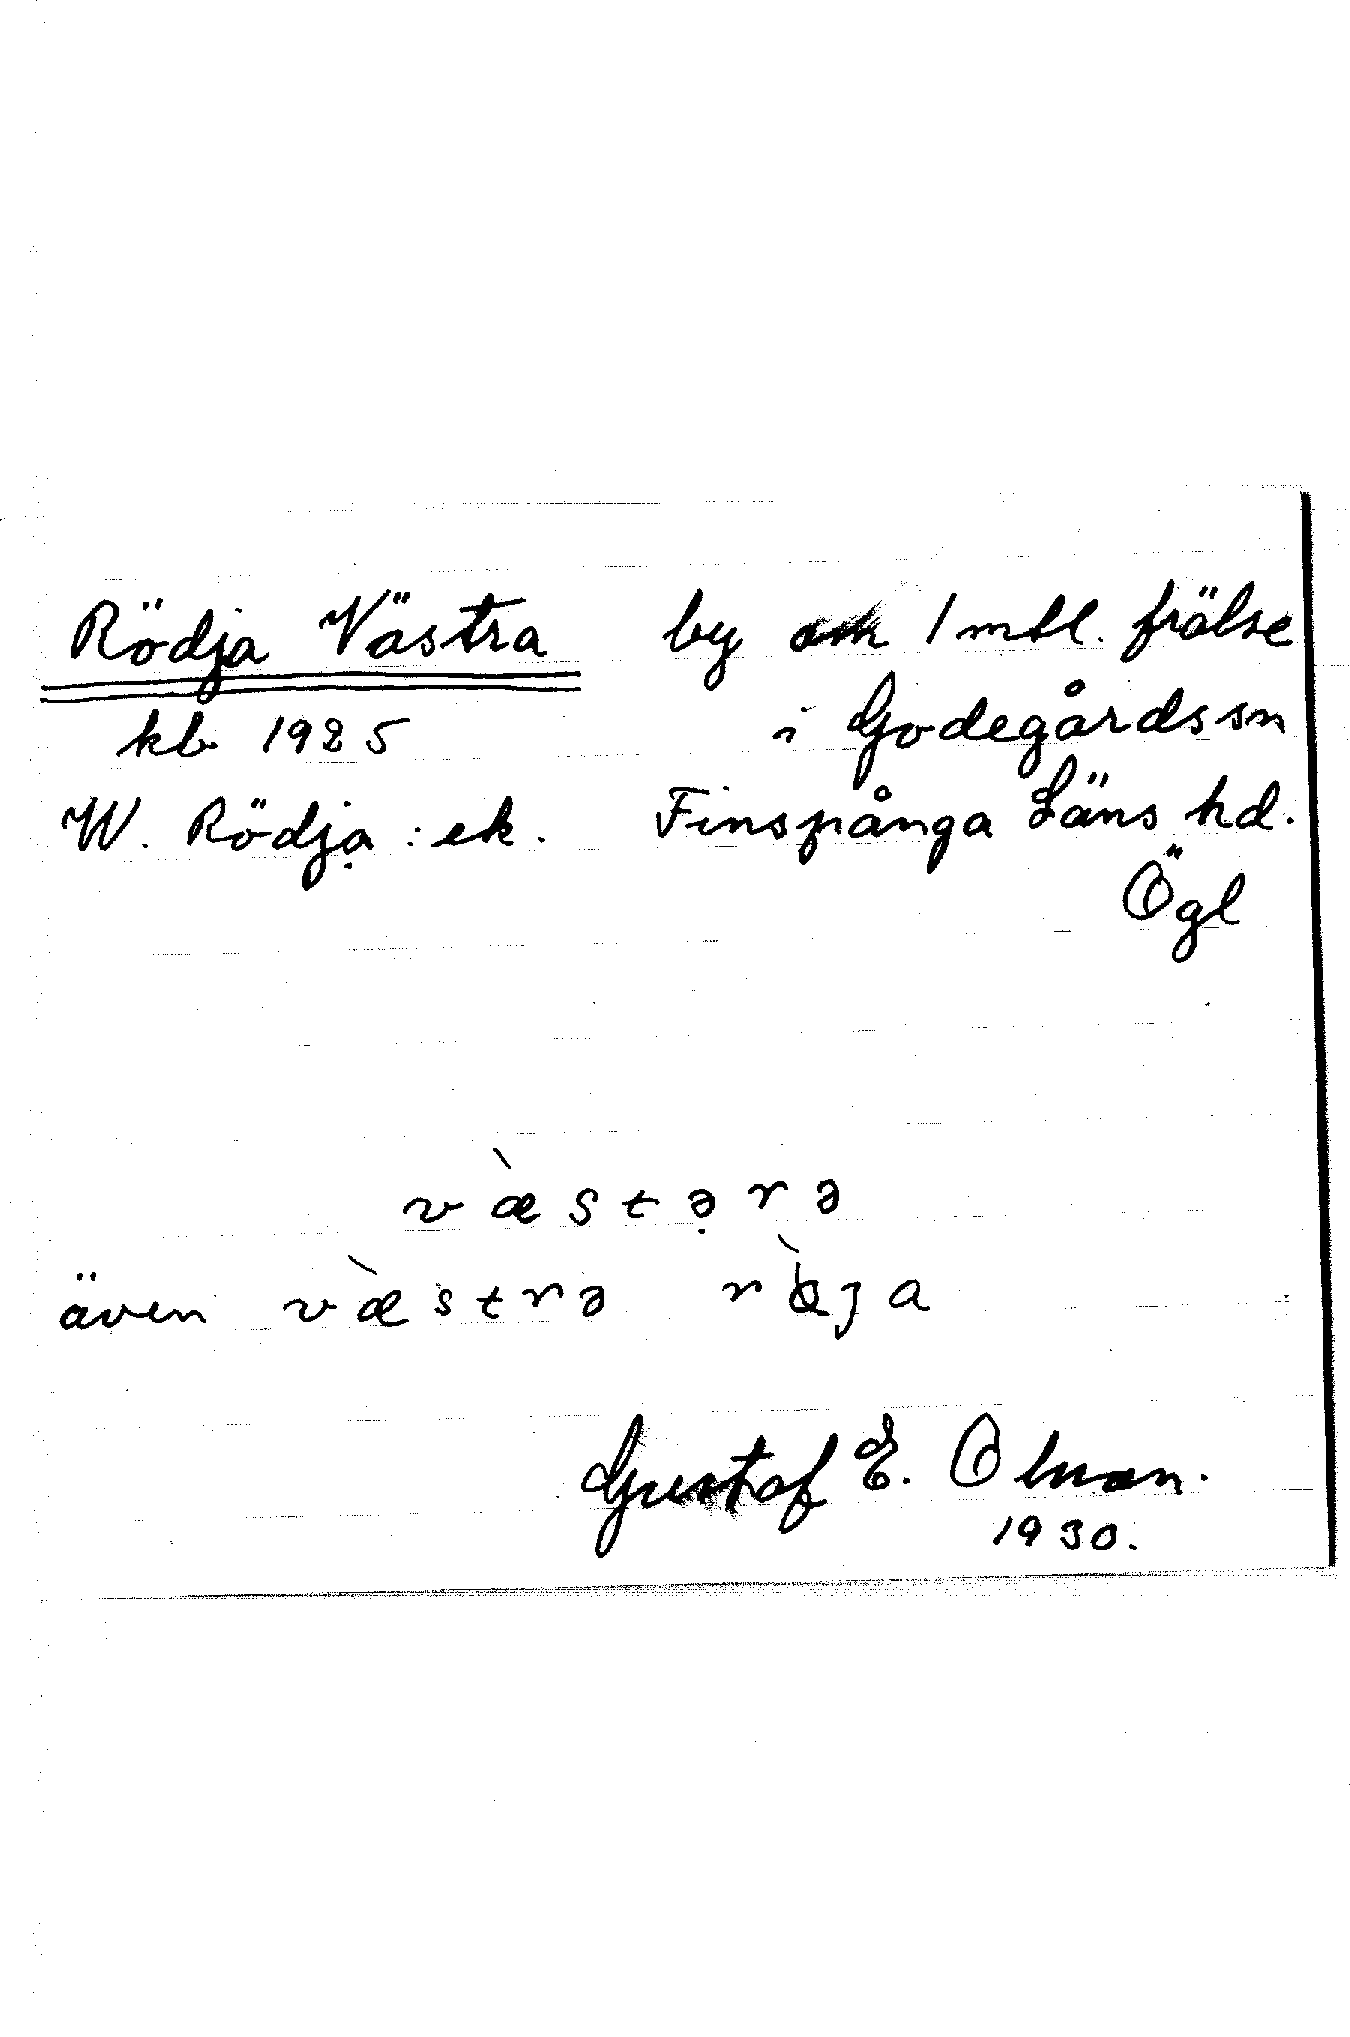 Rödja Västra by 1 mtl. frälse
kb 1925 i Godegårds sn
W. Rödja : ek. Finspånga Läns hd.
Ögl
v æ̀ s t ə̣ r ə
även v æ̀ s t r ə
Gustaf E. Olsson.
1930.